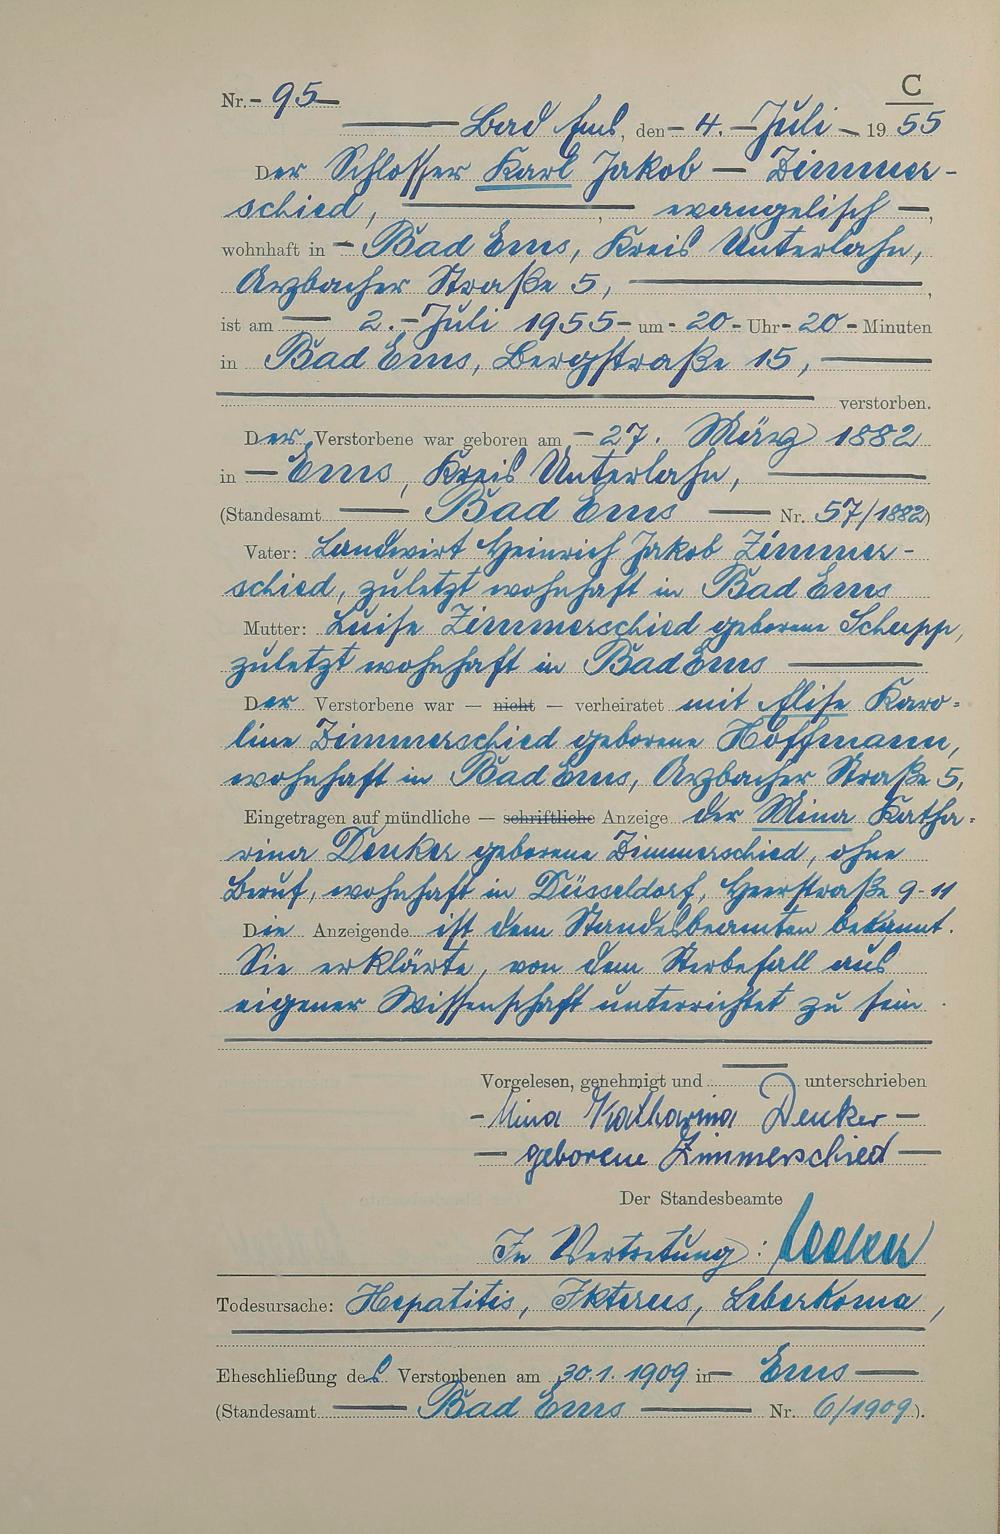 C
Nr. - 95 -
Bad Ems, den - 4. - Juli - 1955
Der Schlosser Karl Jakob - Zimmer-
schied, , evangelisch -,
wohnhaft in - Bad Ems, Kreis Unterlahn,
Arzbacher Straße 5, ,
ist am 2. - Juli 1955 - um - 20 - Uhr - 20 - Minuten
in Bad Ems, Bergstraße 15,
verstorben.
Der Verstorbene war geboren am - 27. März 1882
in - Ems, Kreis Unterlahn,
(Standesamt Bad Ems Nr. 57/1882)
Vater: Landwirt Heinrich Jakob Zimmer-
schied, zuletzt wohnhaft in Bad Ems
Mutter: Luise Zimmerschied geborene Schupp,
zuletzt wohnhaft in Bad Ems
Der Verstorbene war - nicht - verheiratet mit Elise Karo-
line Zimmerschied geborene Hoffmann,
wohnhaft in Bad Ems, Arzbacher Straße 5,
Eingetragen auf mündliche - schriftliche Anzeige der Mina Katha-
rina Denker geborene Zimmerschied, ohne
Beruf, wohnhaft in Düsseldorf, Heerstraße 9-11
Die Anzeigende ist dem Standesbeamten bekannt.
Sie erklärte, von dem Sterbefall aus
eigener Wissenschaft unterrichtet zu sein.
Vorgelesen, genehmigt und unterschrieben
- Mina Katharina Denker -
- geborene Zimmerschied -
Der Standesbeamte
In Vertretung:
Todesursache: Hepatitis, Ikterus, Leberkoma,
Eheschließung des Verstorbenen am 30.1.1909 in - Ems
(Standesamt Bad Ems Nr. 6/1909).